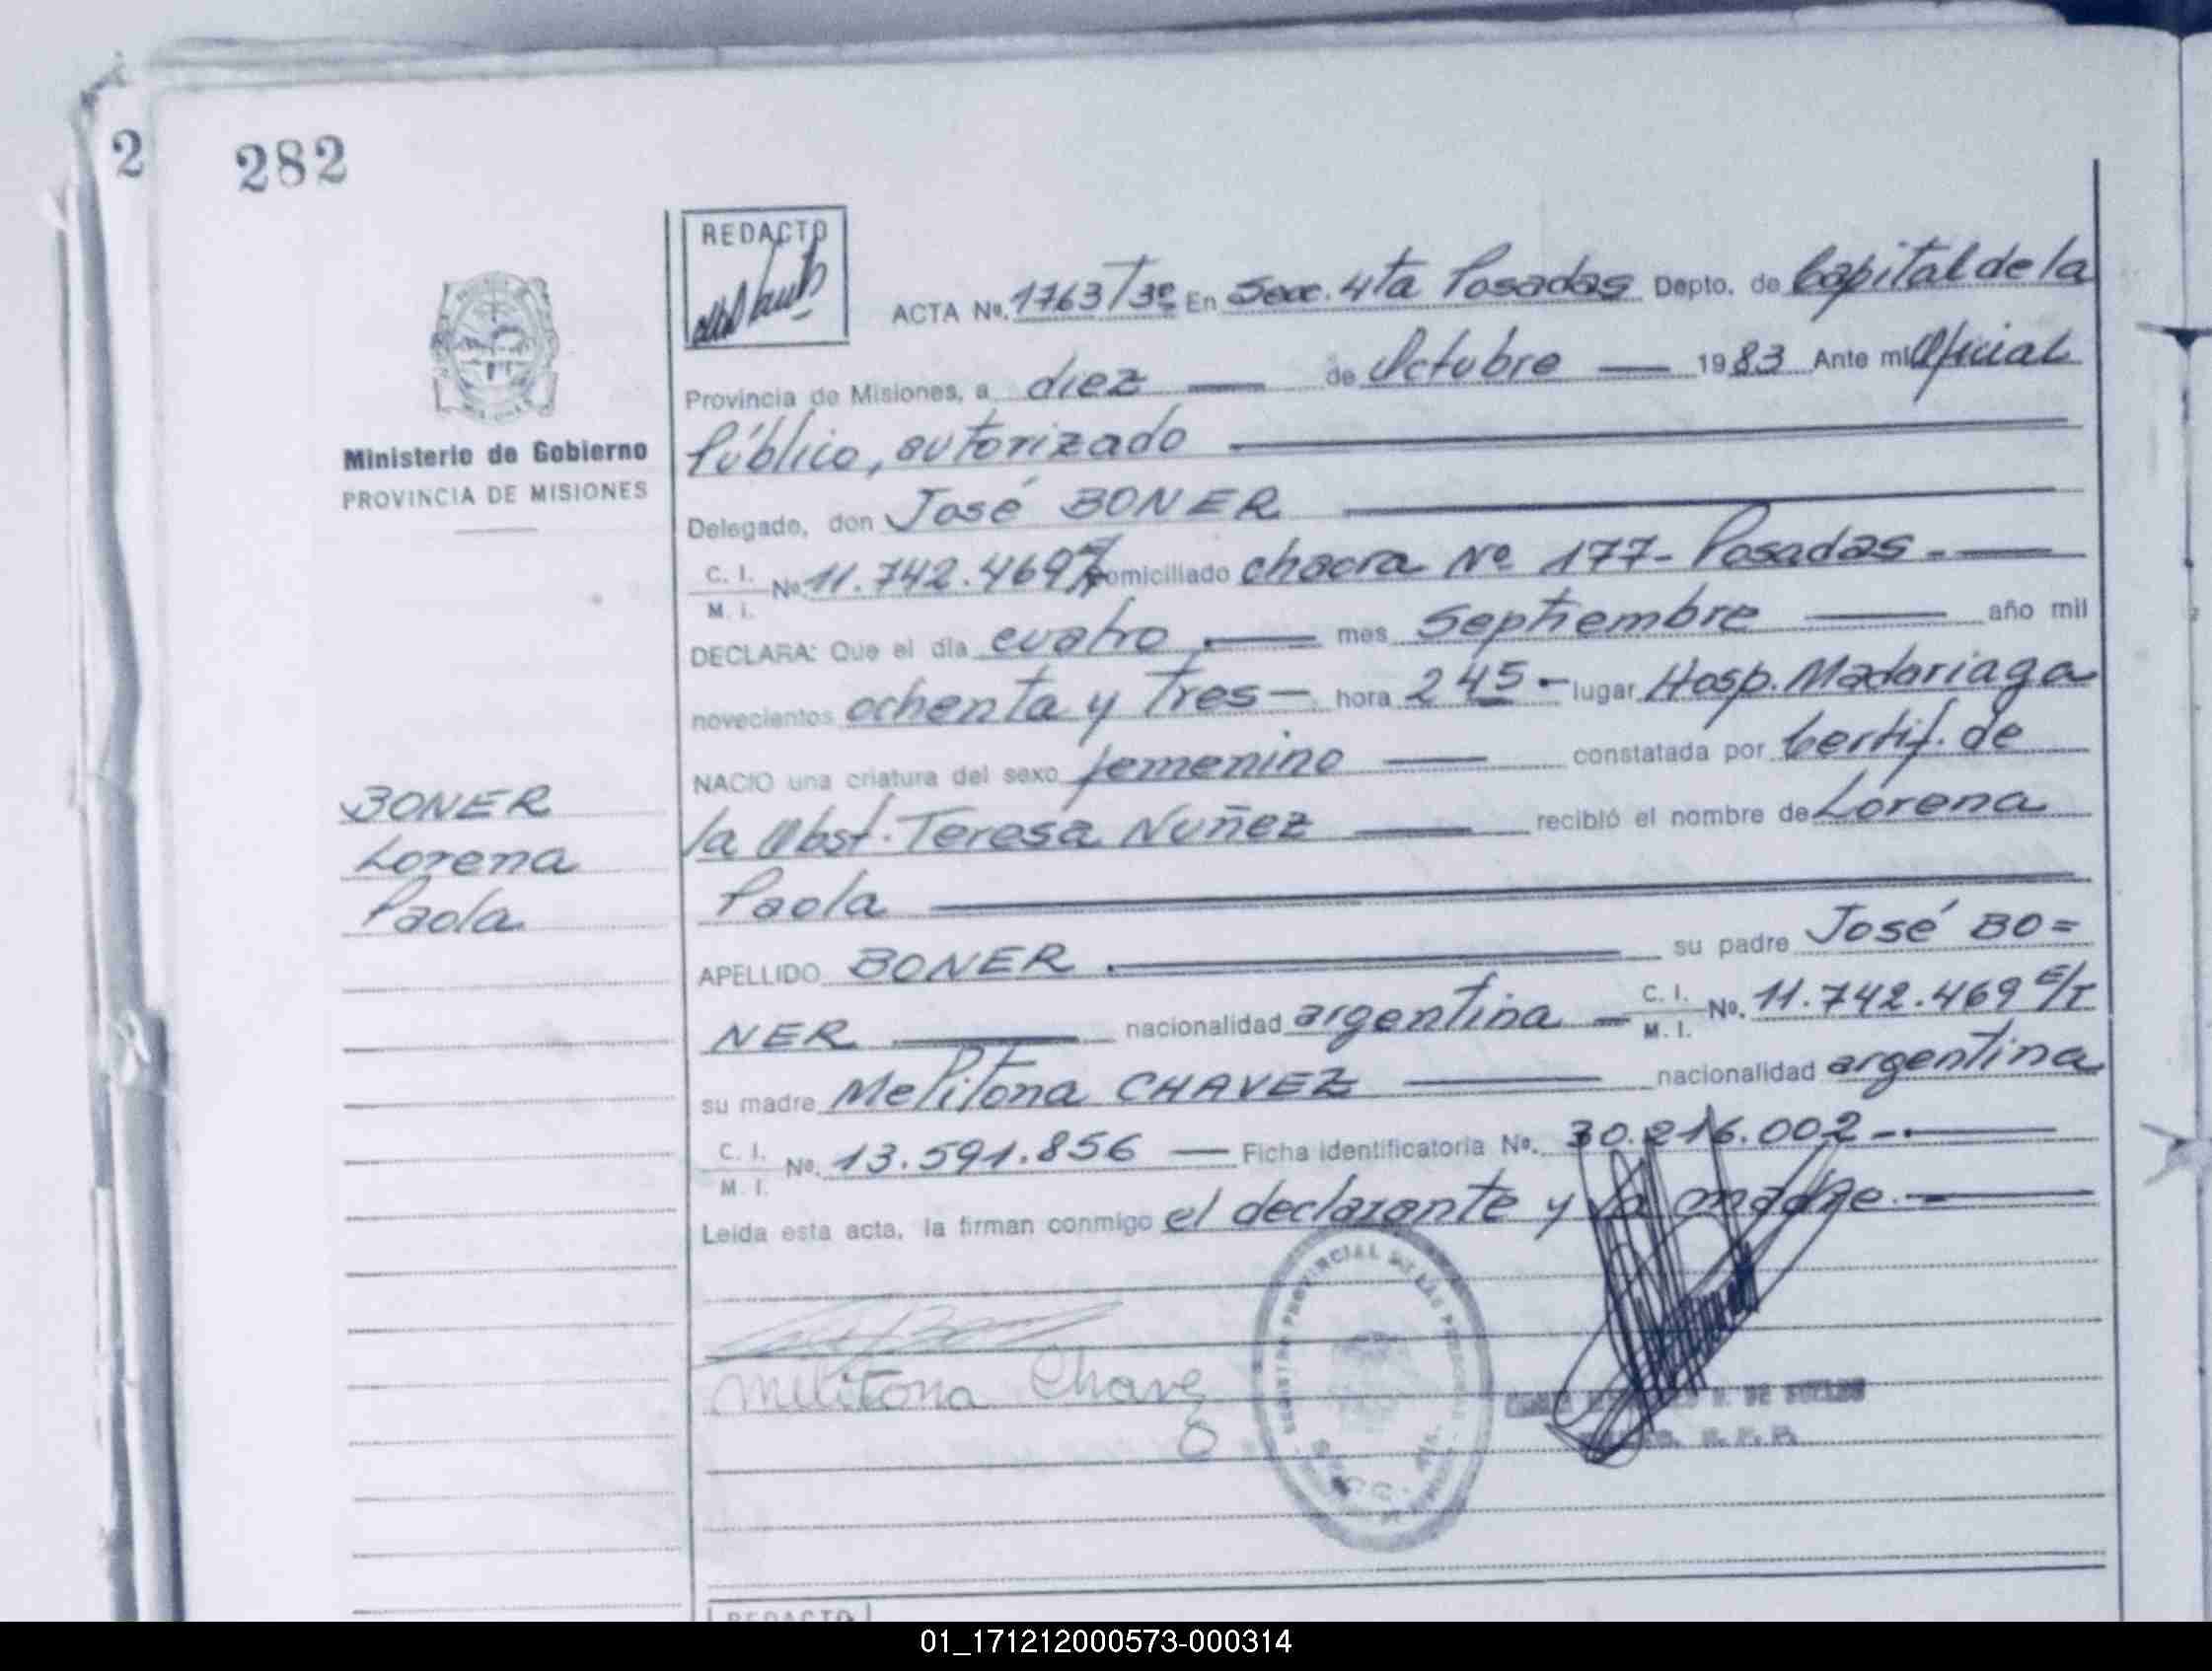 2
282
REDACTO
ACTA Nº. 1763/3º En Secc. 4ta Posadas Depto. de Capital de la
Provincia de Misiones, a diez de Octubre 1983 Ante mi Oficial
Público, autorizado
Ministerio de Gobierno
PROVINCIA DE MISIONES
Delegado, don José BONER
C. I.
M. I.
Nº 11.742.469 domiciliado chacra Nº 177- Posadas.-
DECLARA: Que el día cuatro mes Septiembre año mil
novecientos ochenta y tres- hora 2 45- lugar Hosp. Madariaga
NACIO una criatura del sexo femenino constatada por Certif. de
la Obst. Teresa Nuñez recibió el nombre de Lorena
Paola
BONER
Lorena
Paola
APELLIDO BONER su padre José BO=
NER nacionalidad argentina - C. I. M. I. No. 11.742.469 E/T
su madre Melitona CHAVEZ nacionalidad argentina
C. I.
M. I.
Nº. 13.591.856 - Ficha identificatoria Nº. 30.216.002-.
Leída esta acta, la firman conmigo el declarante y la madre.-
Melitona Chavez
DE
R. P. P.
REDACTO
01_171212000573-000314